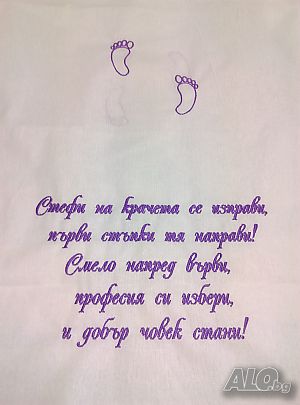 Стефи на крачета се изправи,
първи стъпки тя направи!
Смело напред върви,
професия си избери,
и добър човек стани!
ALO.bg